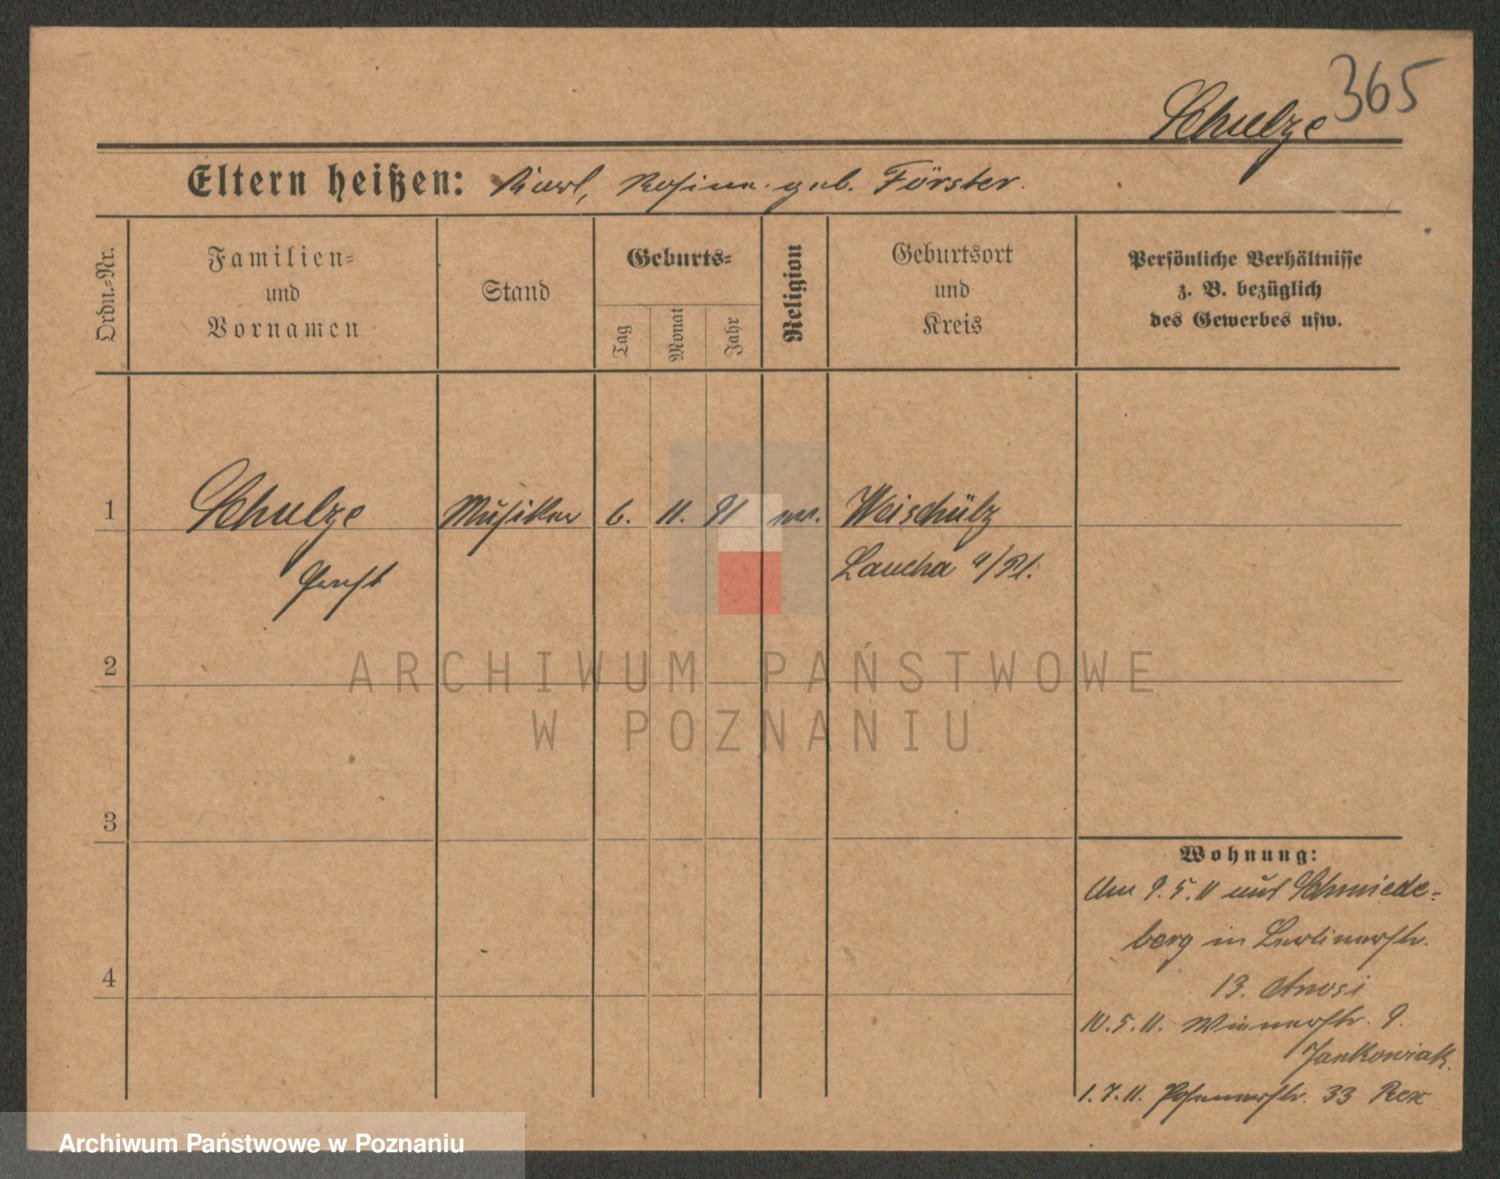 365
Schulze
Eltern heißen: Karl, Rosine geb. Förster.
Ordn.-Nr.
Familien-
und
Vornamen
Stand
Geburts-
Tag
Monat
Jahr
Religion
Geburtsort
und
Kreis
Persönliche Verhältnisse
z. B. bezüglich
des Gewerbes usw.
1 Schulze Musiker 6. 11. 91 ev. Weischütz
Ernst Laucha a/
2
ARCHIWUM PAŃSTWOWE
W POZNANIU
3
Wohnung:
Am 9.5.11 aus Schmiede-
berg in Berlinerstr.
13.
4
10.5.11. Wienerstr. 9.
Jankowiak.
1.7.11. Posenerstr. 33 Rex
Archiwum Państwowe w Poznaniu